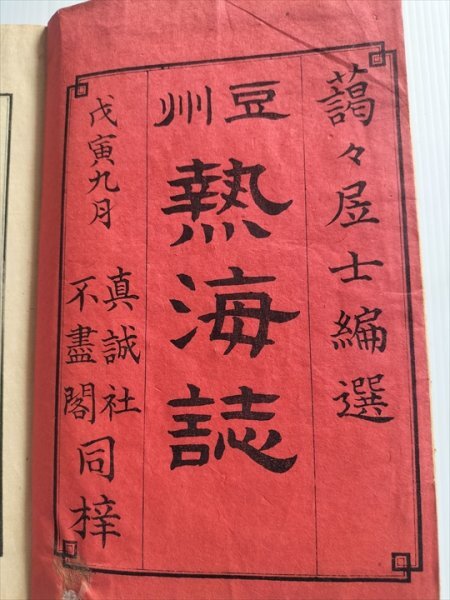 藹々居士編選
豆州
熱海誌
戊寅九月
真誠社
不盡閣
同梓